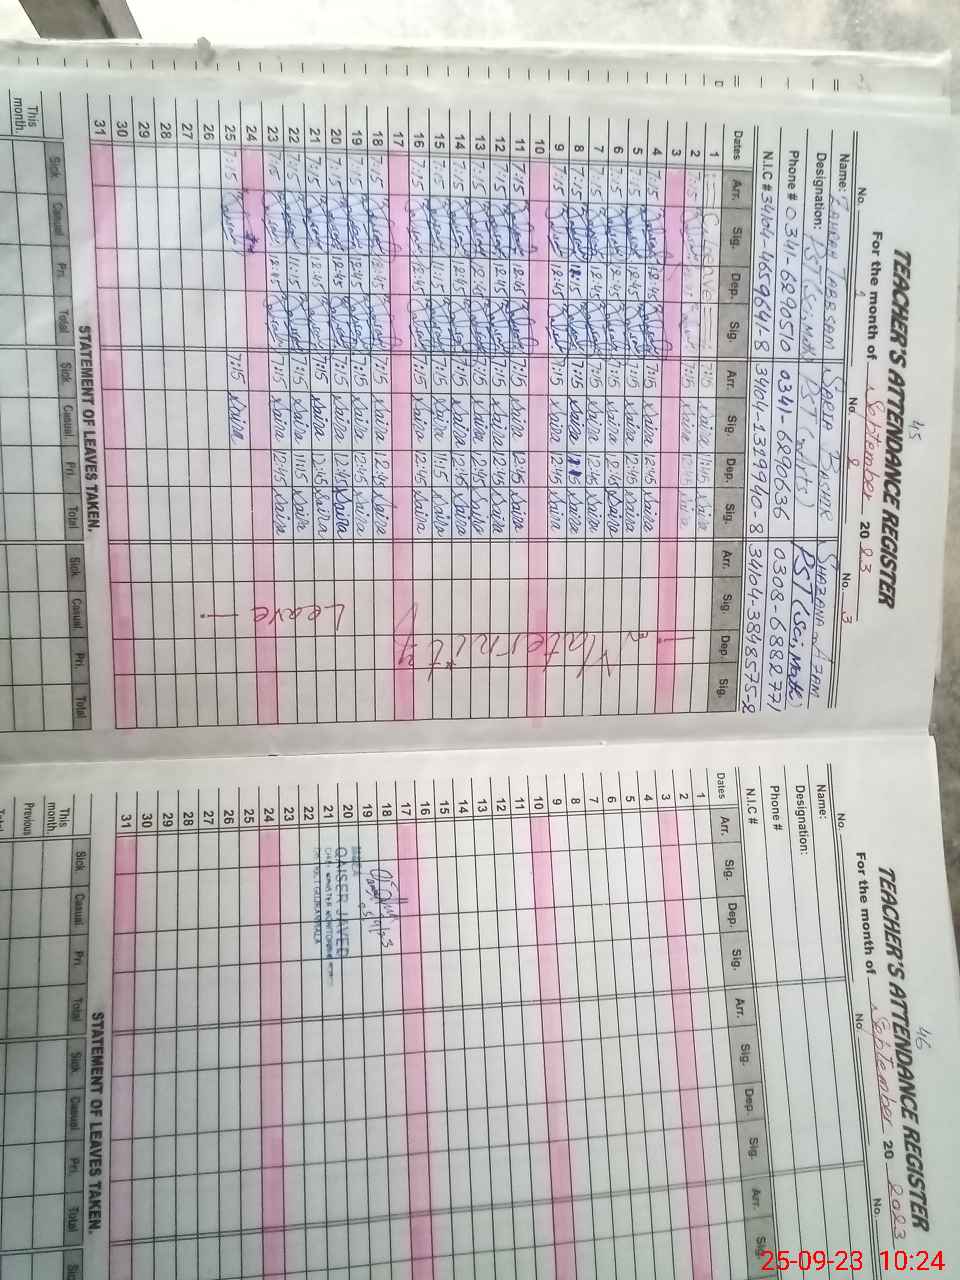 45
TEACHER'S ATTENDANCE REGISTER
For the month of September 2023
No. 1 No. 2 No. 3
Name: TABASSAM SARIA BASHIR SHAZANA AZAM
Designation: PST (Sci, Math) PST PST (Sci, Math)
Phone # 0341-6290510 0341-6290636 0308-6882771
N.I.C # 34104-4659641-8 34104-1319940-8 34104-3848575-2
Dates Arr. Sig. Dep. Sig. Arr. Sig. Dep. Sig. Arr. Sig. Dep. Sig.
1 7:15 Saira 11:15 Saira
2 7:15 7:15 Saira 12:45 Saira
3
4 7:15 12:45 7:15 Saira 12:45 Saira
5 7:15 12:45 7:15 Saira 12:45 Saira
6 7:15 12:45 7:15 Saira 12:45 Saira
7 7:15 12:45 7:15 Saira 12:45 Saira
8 7:15 7:15 Saira Saira
9 7:15 12:45 7:15 Saira 12:45 Saira
10
11 7:15 12:45 7:15 Saira 12:45 Saira
12 7:15 12:45 7:15 Saira 12:45 Saira
13 7:15 12:45 7:15 Saira 12:45 Saira
14 7:15 12:45 7:15 Saira 12:45 Saira
15 7:15 11:15 7:15 Saira 11:15 Saira
16 7:15 12:45 7:15 Saira 12:45 Saira
17
18 7:15 12:45 7:15 Saira 12:45 Saira
19 7:15 12:45 7:15 Saira 12:45 Saira
20 7:15 12:45 7:15 Saira 12:45 Saira
21 7:15 12:45 7:15 Saira 12:45 Saira
22 7:15 11:15 7:15 Saira 11:15 Saira
23 7:15 12:45 7:15 Saira 12:45 Saira
24
25 7:15 7:15 Saira
26
27
28
29
30
31
Maternity Leave
STATEMENT OF LEAVES TAKEN.
Sick Casual Pri. Total Sick Casual Pri. Total Sick Casual Pri. Total
This month.
46
TEACHER'S ATTENDANCE REGISTER
For the month of September 2023
No. No. No.
Name:
Designation:
Phone #
N.I.C #
Dates Arr. Sig. Dep. Sig. Arr. Sig. Dep. Sig. Arr. Sig.
1
2
3
4
5
6
7
8
9
10
11
12
13
14
15
16
17
18
19
20
21
22
23
24
25
26
27
28
29
30
31
QAISER JAVED
DISTRICT GUJRANWALA
STATEMENT OF LEAVES TAKEN.
Sick Casual Pri. Total Sick Casual Pri. Total Sick
This month.
Previous
Total
25-09-23 10:24